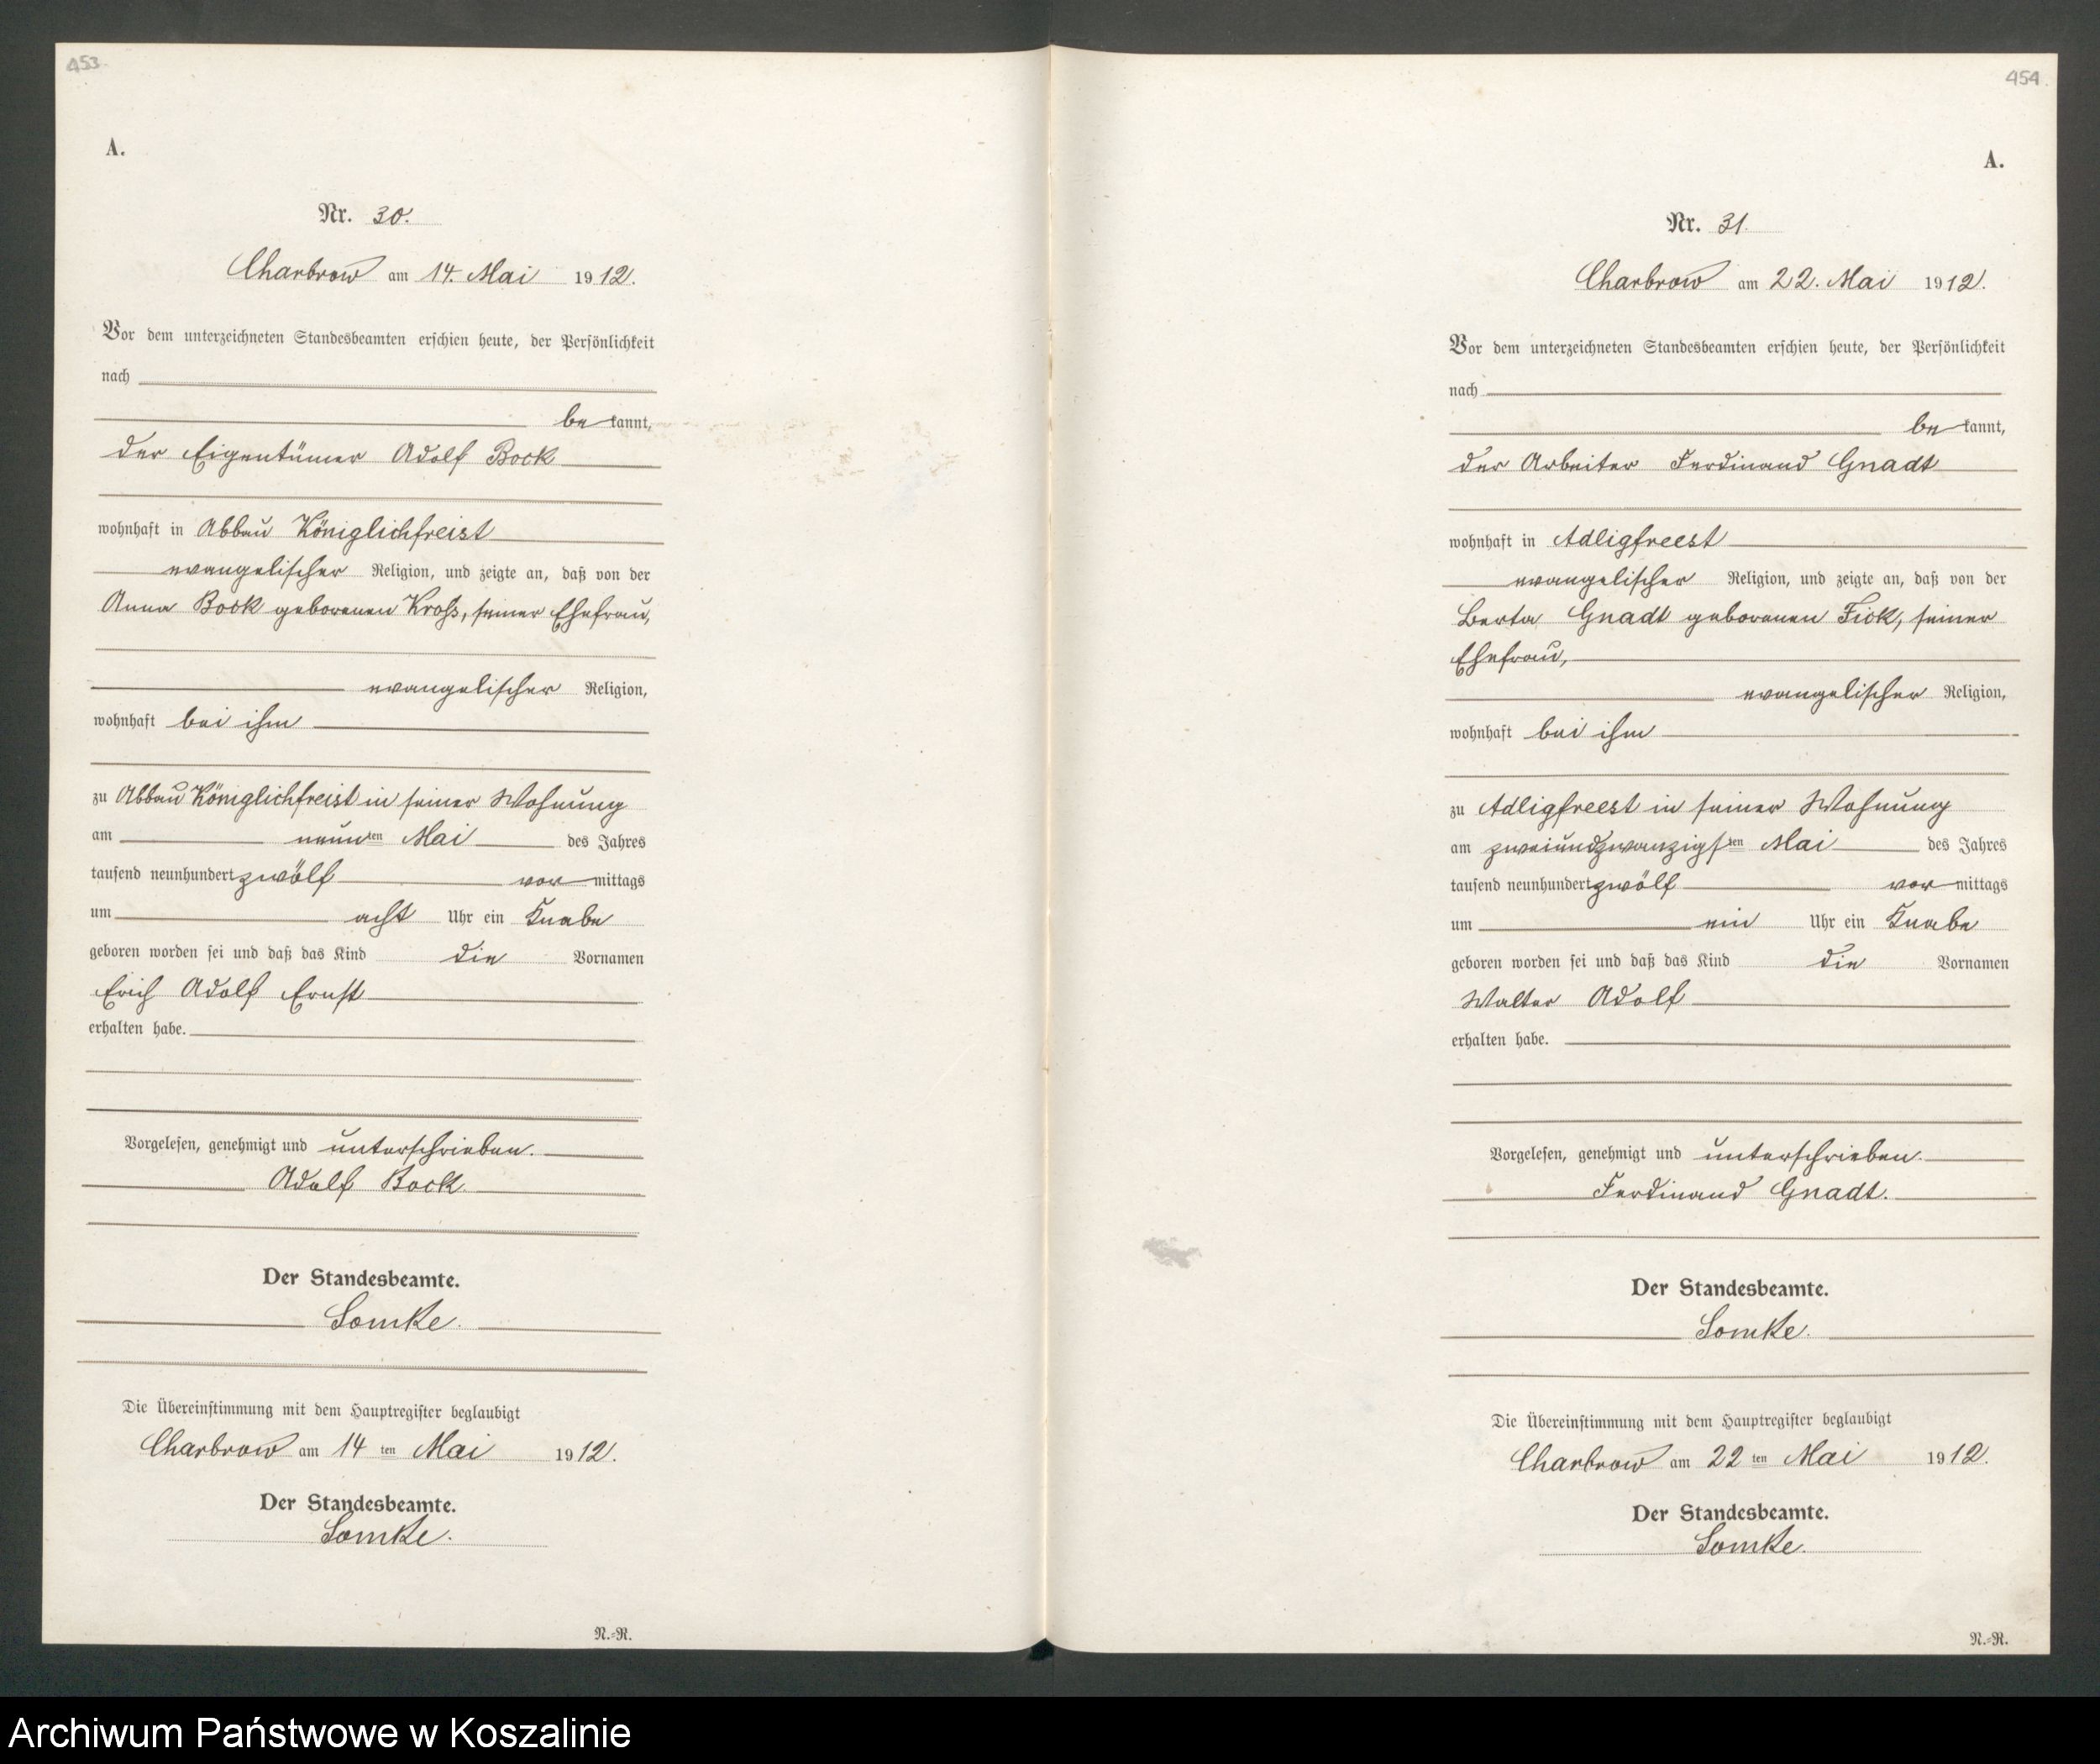 453.
A.
Nr. 30.
Charbrow am 14. Mai 1912.
Vor dem unterzeichneten Standesbeamten erschien heute, der Persönlichkeit
nach
be kannt,
der Eigentümer Adolf Bock
wohnhaft in Abbau Königlichfreist
evangelischer Religion, und zeigte an, daß von der
Anna Bock geborenen Kroß, seiner Ehefrau,
evangelischer Religion,
wohnhaft bei ihm
zu Abbau Königlichfreist in seiner Wohnung
am neunten Mai des Jahres
tausend neunhundert zwölf vor mittags
um acht Uhr ein Knabe
geboren worden sei und daß das Kind die Vornamen
Erich Adolf Ernst
erhalten habe.
Vorgelesen, genehmigt und unterschrieben.
Adolf Bock.
Der Standesbeamte.
Somke.
Die Übereinstimmung mit dem Hauptregister beglaubigt
Charbrow am 14 ten Mai 1912.
Der Standesbeamte.
Somke.
N.=R.
454.
A.
Nr. 31.
Charbrow am 22. Mai 1912.
Vor dem unterzeichneten Standesbeamten erschien heute, der Persönlichkeit
nach
be kannt,
der Arbeiter Ferdinand Gnadt
wohnhaft in Adligfreest
evangelischer Religion, und zeigte an, daß von der
Berta Gnadt geborenen Fick, seiner
Ehefrau,
evangelischer Religion,
wohnhaft bei ihm
zu Adligfreest in seiner Wohnung
am zweiundzwanzigsten Mai des Jahres
tausend neunhundert zwölf vor mittags
um ein Uhr ein Knabe
geboren worden sei und daß das Kind die Vornamen
Walter Adolf
erhalten habe.
Vorgelesen, genehmigt und unterschrieben.
Ferdinand Gnadt.
Der Standesbeamte.
Somke.
Die Übereinstimmung mit dem Hauptregister beglaubigt
Charbrow am 22 ten Mai 1912.
Der Standesbeamte.
Somke.
N.=R.
Archiwum Państwowe w Koszalinie